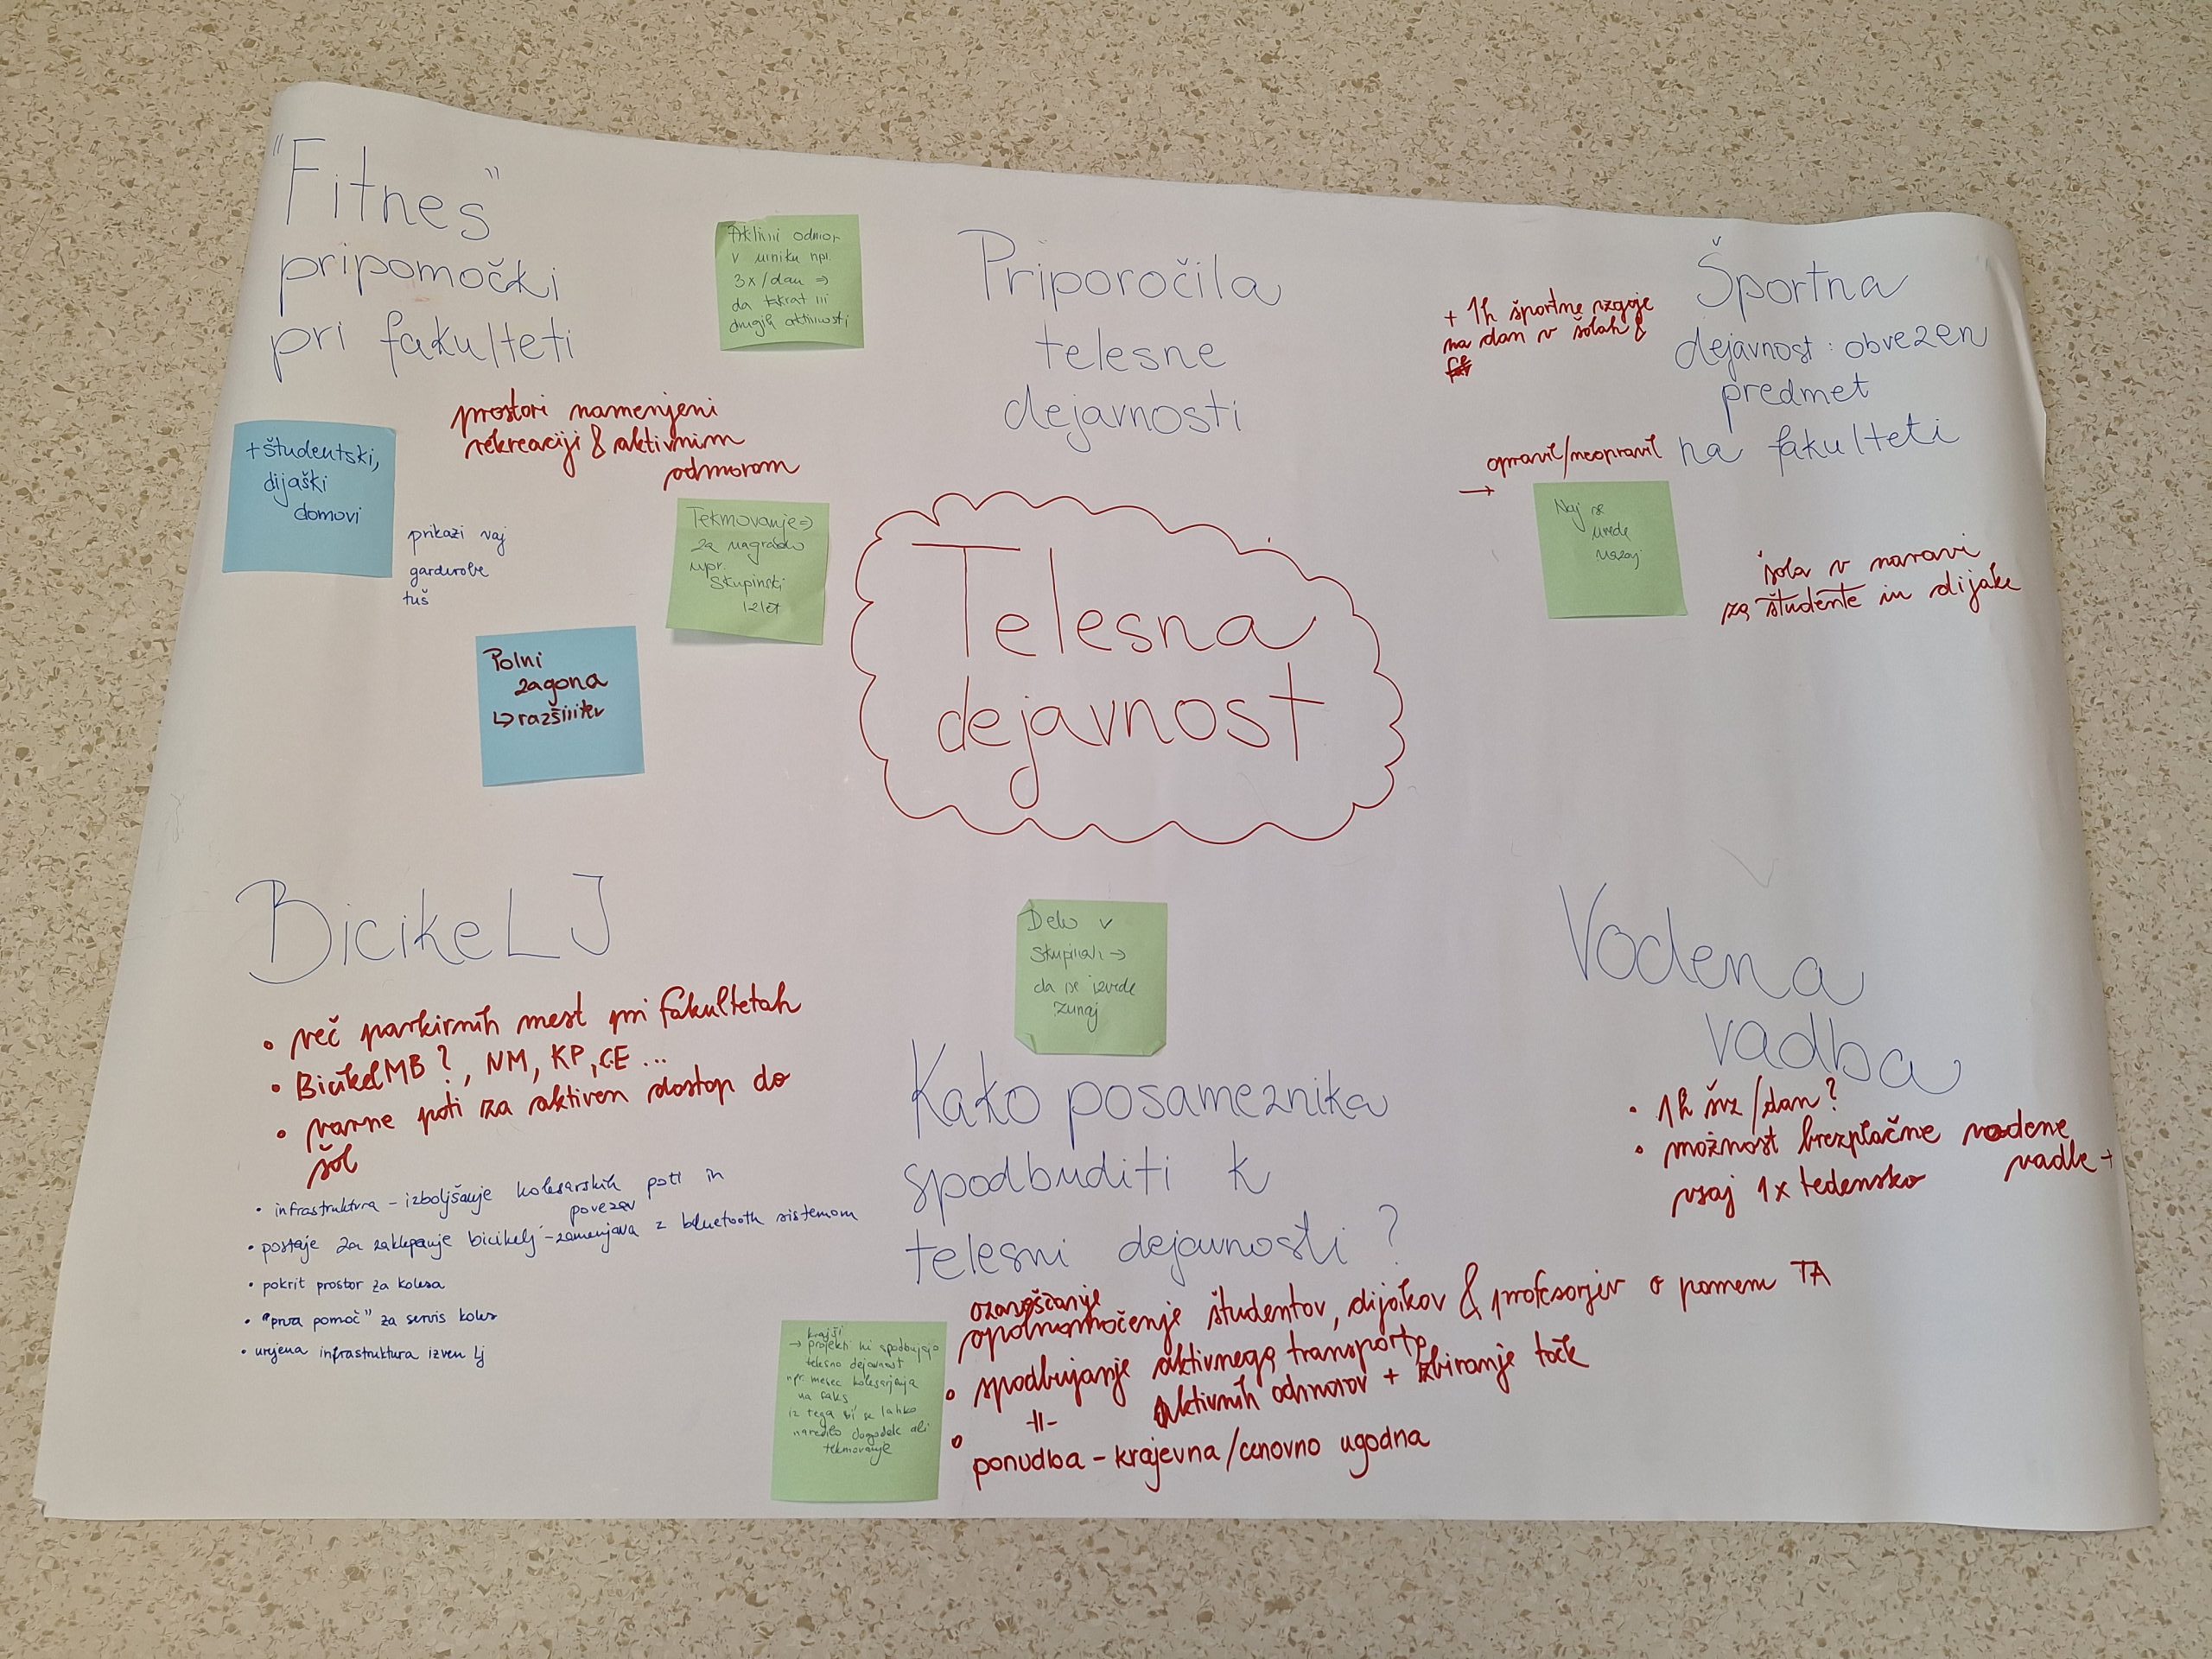 "Fitnes"
pripomočki
pri fakulteti
Aktivni odmor
v urniku npr.
3x/dan ⇒
da takrat ni
drugih aktivnosti
Priporočila
telesne
dejavnosti
+ 1h športne vzgoje
na dan v šolah &
Športna
dejavnost: obvezen
predmet
na fakulteti
opravil/neopravil
→
Naj se
uvede
nazaj
šola v naravi
za študente in dijake
prostori namenjeni
rekreaciji & aktivnim
odmorom
+študentski,
dijaški
domovi
prikazi vaj
garderobe
tuš
Tekmovanje ⇒
za nagrado
npr.
skupinski
izlet
Polni
zagona
↳ razširitev
Telesna
dejavnost
BicikeLJ
• več parkirnih mest pri fakultetah
• BicikelMB?, NM, KP, CE ...
• varne poti za aktiven dostop do
šol
• infrastruktura – izboljšanje kolesarskih poti in
povezav
• postaje za zaklepanje bicikelj – zamenjava z bluetooth sistemom
• pokrit prostor za kolesa
• "prva pomoč" za servis koles
• urejena infrastruktura izven Lj
Delo v
skupinah →
da se izvede
zunaj
Kako posameznika
spodbuditi k
telesni dejavnosti?
ozaveščanje
opolnomočenje študentov, dijakov & profesorjev o pomenu TA
• spodbujanje aktivnega transporta
-||- aktivnih odmorov + zbiranje točk
• ponudba – krajevna/cenovno ugodna
krajši
→ projekti ki spodbujajo
telesno dejavnost
npr. mesec kolesarjenja
na faks
iz tega bi se lahko
naredilo dogodek ali
tekmovanje
Vodena
vadba
• 1h švz/dan?
• možnost brezplačne vodene
vadbe +
vsaj 1x tedensko